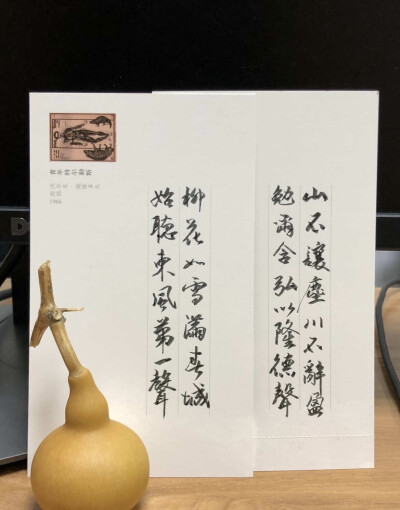 山不讓塵川不辭盈
勉爾含弘以隆德聲
柳花如雪滿春城
始聽東風第一聲